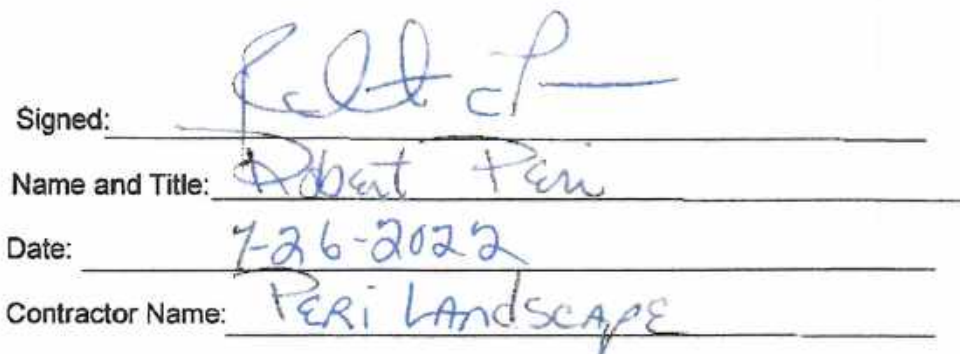 Signed:
Name and Title: Robert Peri
Date: 7-26-2022
Contractor Name: PERi LANdSCAPE